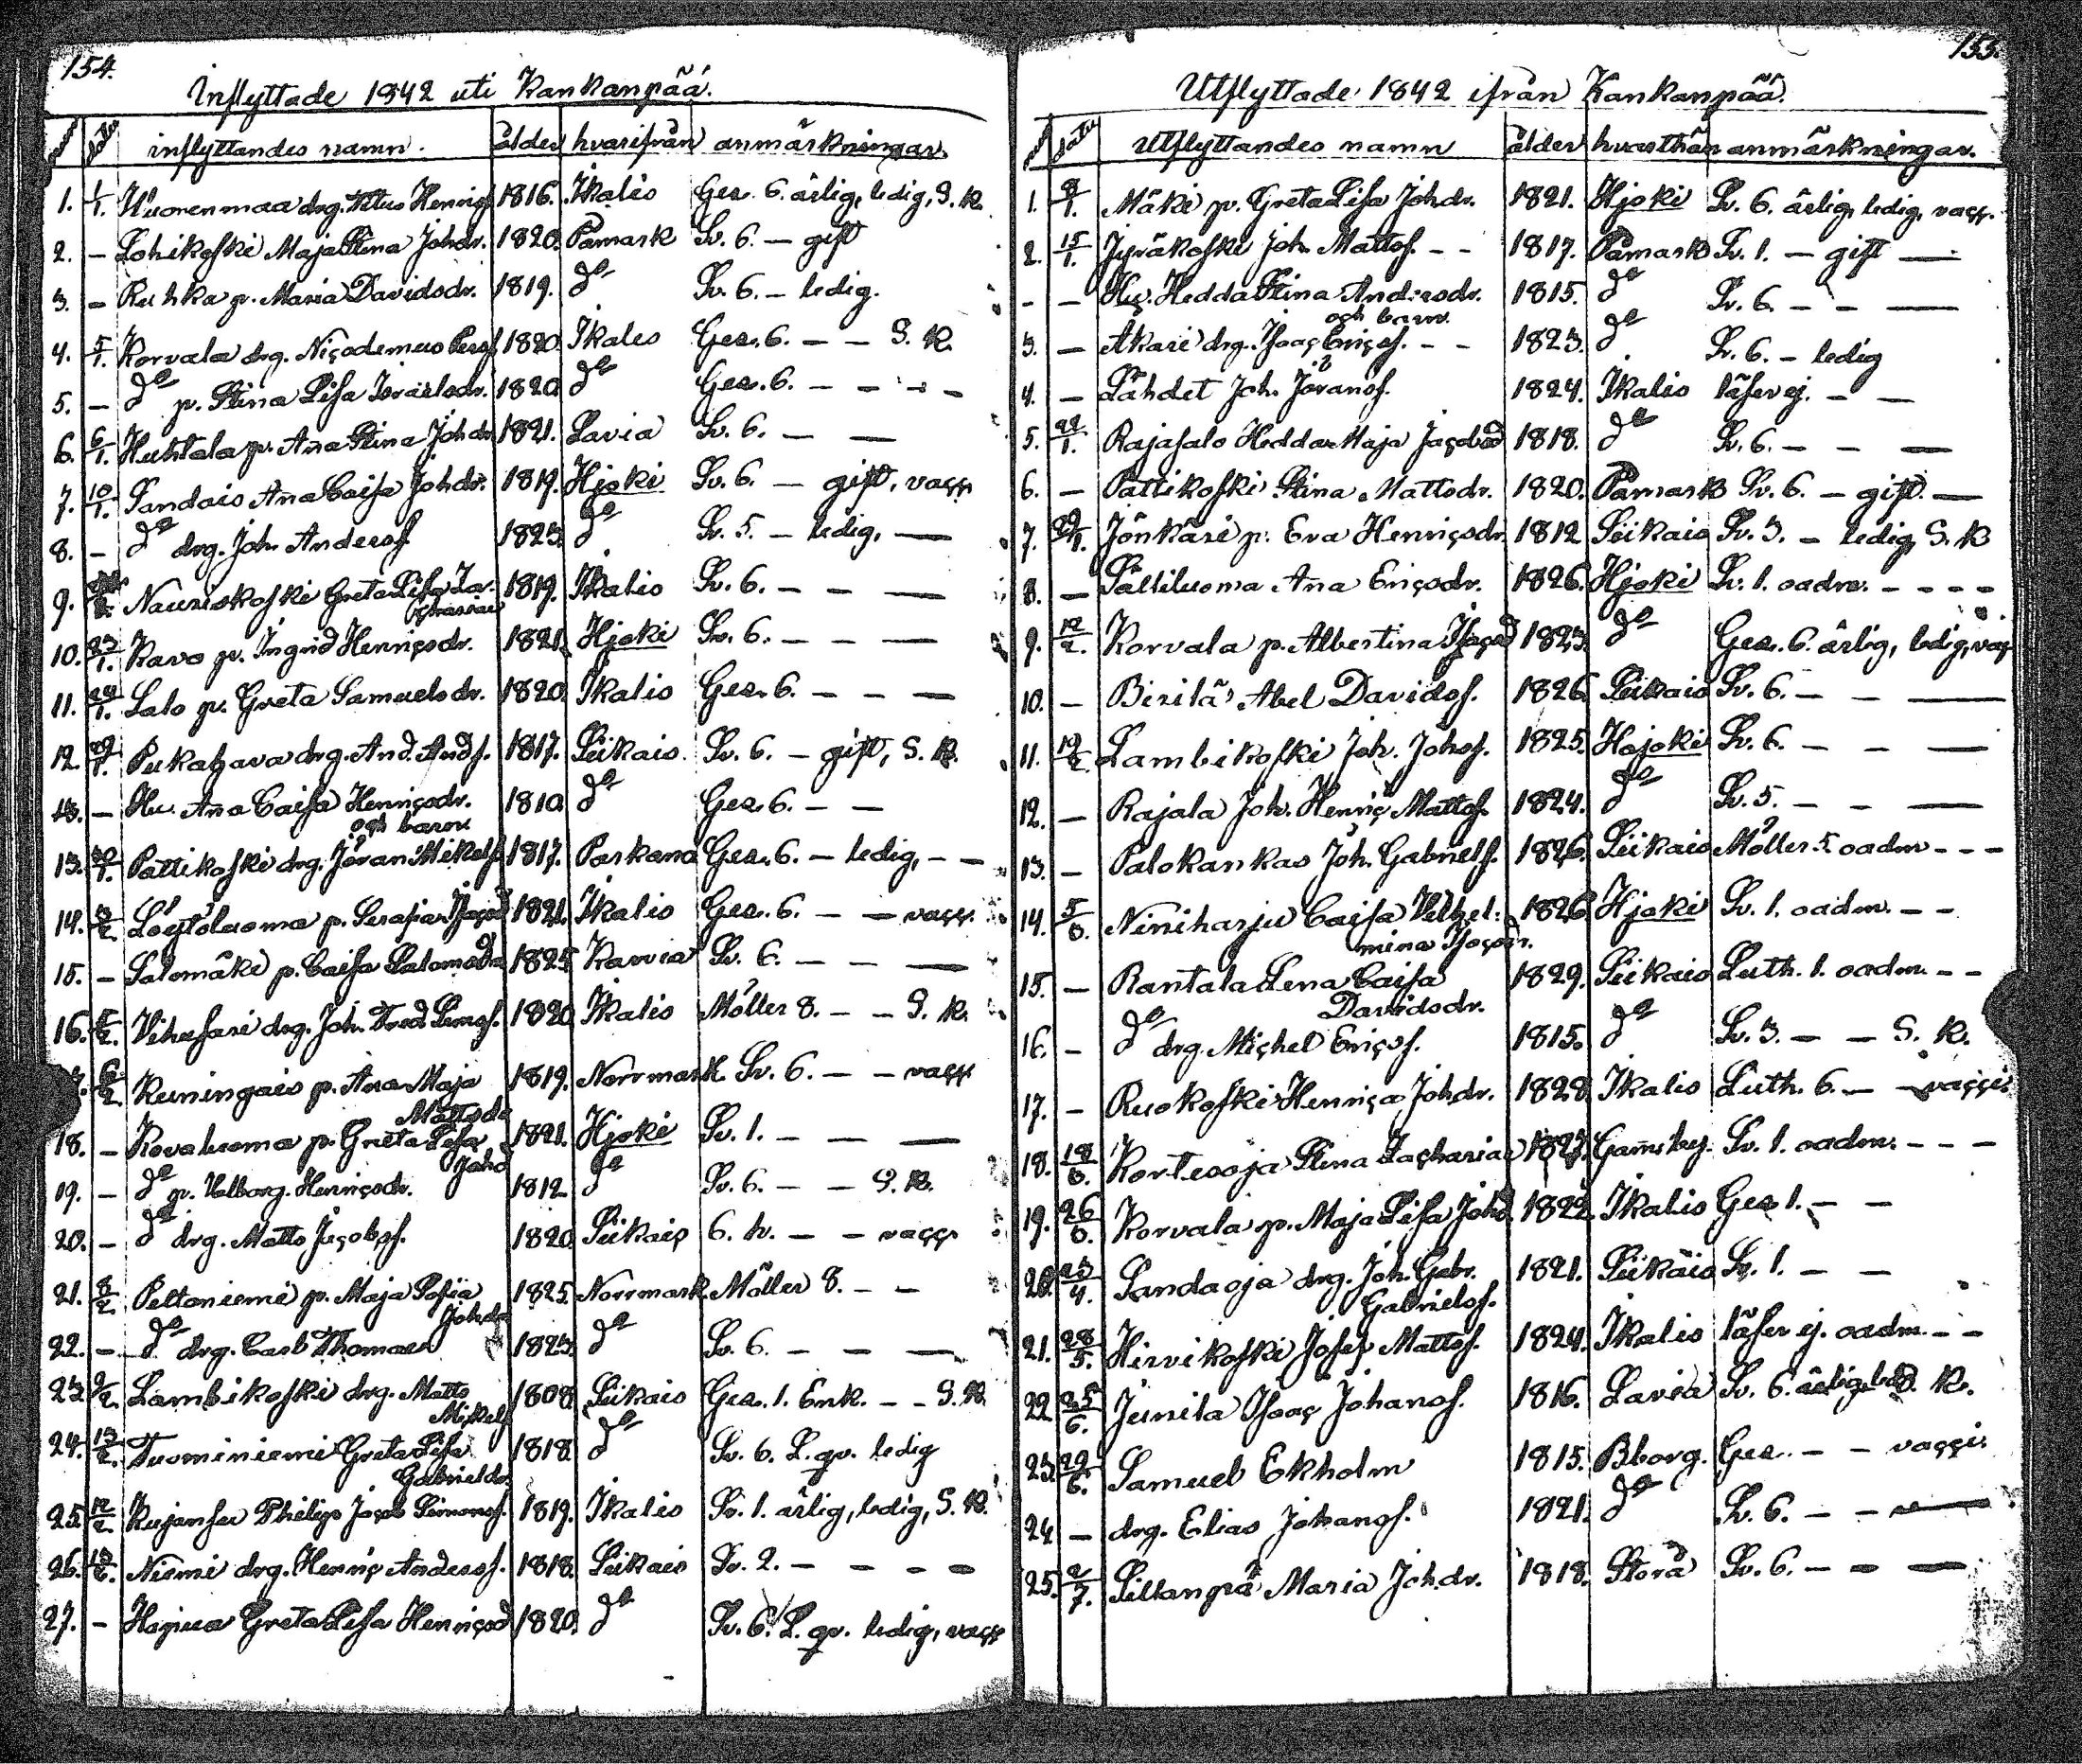 154.
Inflyttade 1842 uti Kankanpää.
inflyttandes namn. ålder hvarifrån anmärkningar.
1. 1/1. Wuorenmaa drg. Henrigs. 1816. Ikalis Ges. 6. ärlig, ledig, S. K.
2. – Lohikoski Maja Stina Johdr. 1820. Påmark Sv. 6. – gift
3. – Ruhka p. Maria Davidsdr. 1819. do Sv. 6. – ledig.
4. 5/1. Korvala drg. Niçodemus 1820. Ikales Ges. 6. – – S. K.
5. – do p. Stina Lisa Israelsdr. 1820. do Ges. 6. – – – –
6. 6/1. Huhtala p. Aña Stina Johdr. 1821. Lavia Sv. 6. – –
7. 10/1. Sandais Aña Caisa Johdr. 1819. Hjoki Sv. 6. – gift, vaçç
8. – do drg. Joh. Andersf. 1823. do Sv. 5. – ledig, —
9. Nauriskoski Greta Lisa Zachariae 1819. Ikalis Sv. 6. – – —
10. 23/1. Karvo p. Ingrid Henriçsdr. 1821. Hjoki Sv. 6. – – —
11. 24/1. Salo p. Greta Samuelsdr. 1820. Ikalis Ges. 6. – – —
12. 29/1. Pukahava drg. And. Andf. 1817. Siikais Sv. 6. – gift, S. K.
13. – Hu. Aña Caisa Henriçsdr. 1810. do Ges. 6. – –
och barn
13. 30/1. Pattikoski drg. Jöran Mikelf. 1817. Parkano Ges. 6. – ledig, – –
14. 3/2. Löytöluoma p. Serafia Isaçsd 1821. Ikalis Ges. 6. – – vaçç.
15. – Salomäki p. Caisa Salomosdr 1825. Karvia Sv. 6. – – —
16. 5/2. Vihusari drg. Joh. Fred. Simsf. 1820. Ikalis Möller 8. – – S. K.
6/2. Kuningais p. Aña Maja 1819. Norrmark. Sv. 6. – – vaçç
Mattsdr
18. – Kovaluoma p. Greta Lisa 1821. Hjoki Sv. 1. – – —
Johd
19. – do p. Valborg. Henriçsdr. 1812. do Sv. 6. – – S. K.
20. – do drg. Matts Jaçobsf. 1820. Siikais 6. h. – – vaçç
21. 8/2. Peltoniemi p. Maja Sofia 1825. Norrmark Möller 8. – –
Johdr
22. – do drg. Carl Thomass 1823. do Sv. 6. – – —
23. 9/2. Lambikoski drg. Matts 1808. Siikais Ges. 1. Enk. – – S. K.
Mikelf
24. 12/2. Tuominiemi Greta Lisa 1818. do Sv. 6. L. qv. ledig
Gabrielsdr
25. 12/2. Kujansu Philip Jaçob Simonsf. 1819. Ikalis Sv. 1. ärlig, ledig, S. K.
26. 13/2. Niemi drg. Henriç Andersf. 1818. Siikais Sv. 2. – – – –
27. – Hapua Greta Lisa Henriçsd 1820. do Sv. 6. L. qv. ledig, vaçç
155.
Utflyttade 1842 ifrån Kankanpää.
datu Utflyttandes namn ålder hvarthän anmärkningar.
1. 8/1. Mäki p. Greta Lisa Johdr. 1821. Hjoki Sv. 6. ärlig, ledig, vaçç.
2. 15/1. Jyräkoski Joh. Mattsf. – – 1817. Påmark Sv. 1. – gift —
– – Hu. Hedda Stina Andersdr. 1815. do Sv. 6. – – —
och barn.
3. – Akari drg. Isaaç Eriçsf. – – 1823. do Sv. 6. – ledig
4. – Lähdet Joh. Göransf. 1824. Ikalis läser ej. – –
5. 22/1. Rajasalo Hedda Maja Jaçobsd 1818. do Sv. 6. – – —
6. – Pattikoski Stina Mattsdr. 1820. Påmark Sv. 6. – gift. —
7. 29/1. Jönkäri p. Eva Henriçsdr. 1812 Siikais Sv. 3. – ledig, S. K
8. – Sältiluoma Aña Eriçsdr. 1826. Hjoki Sv. 1. oadm. – – – –
9. 12/2. Korvala p. Albertina Isaçsd 1823. do Ges. 6. ärlig, ledig, vaç
10. – Birilä Abel Davidsf. 1826. Siikais Sv. 6. – – —
11. 19/2. Lambikoski Joh. Johsf. 1825. Hojoki Sv. 6. – – —
12. – Rajala Joh. Henriç Mattsf. 1824. do Sv. 5. – – —
13. – Palokankas Joh. Gabrielsf. 1826. Siikais Möller 5. oadm – – –
14. 5/3. Niniharju Caisa Vilhel: 1826. Hjoki Sv. 1. oadm. – –
mina Isaçsdr.
15. – Rantala Lena Caisa 1829. Siikais Luth. 1. oadm. – –
Davidsdr.
16. – do drg. Miçhel Eriçsf. 1815. do Sv. 3. – – S. K.
17. – Ruokoski Henriça Johdr. 1828. Ikalis Luth. 6. – – vaççi.
18. 19/3. Kortesoja Stina Zaçharias 1823. Gamlkby. Sv. 1. oadm. – – –
19. 26/3. Korvala p. Maja Lisa Johd. 1822. Ikalis Ges 1. – –
20. 23/4. Sandaoja drg. Joh. Gabr. 1821. Siikais Sv. 1. – –
Gabrielsf.
21. 28/5. Hirvikoski Josef Mattsf. 1824. Ikalis läser ej. oadm. – –
22. 25/6. Junila Isaaç Johansf. 1816. Lavia Sv. 6. ärlig, led. S. K.
23. 29/6. Samuel Ekholm 1815. Bborg. Ges. – – vaççi.
24 – drg. Elias Johansf. 1821. do Sv. 6. – – —
25. 2/7. Siltanpä Maria Johdr. 1818. Storå Sv. 6. – – —